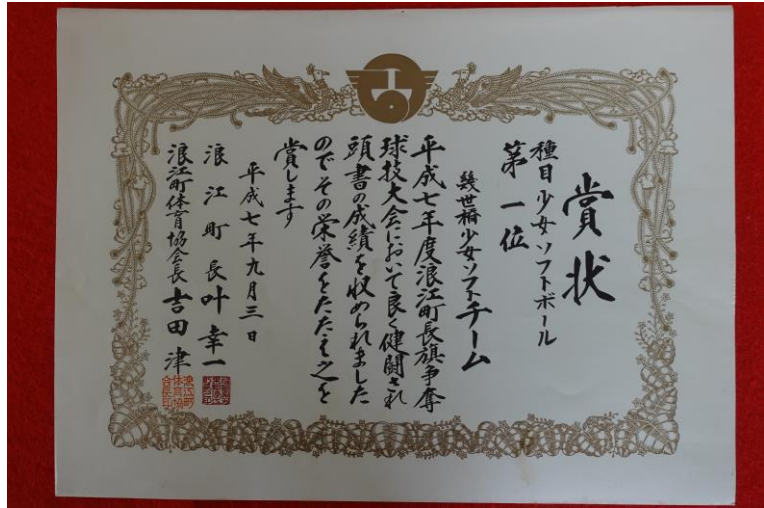 賞状
種目少女ソフトボール
第一位
幾世橋少女ソフトチーム
平成七年度浪江町長旗争奪
球技大会において良く健闘され
頭書の成績を収められました
のでその栄誉をたたえ之を
賞します
平成七年九月三日
浪江町長叶幸一
浪江町体育協会長吉田津
浪江町体育協会長印